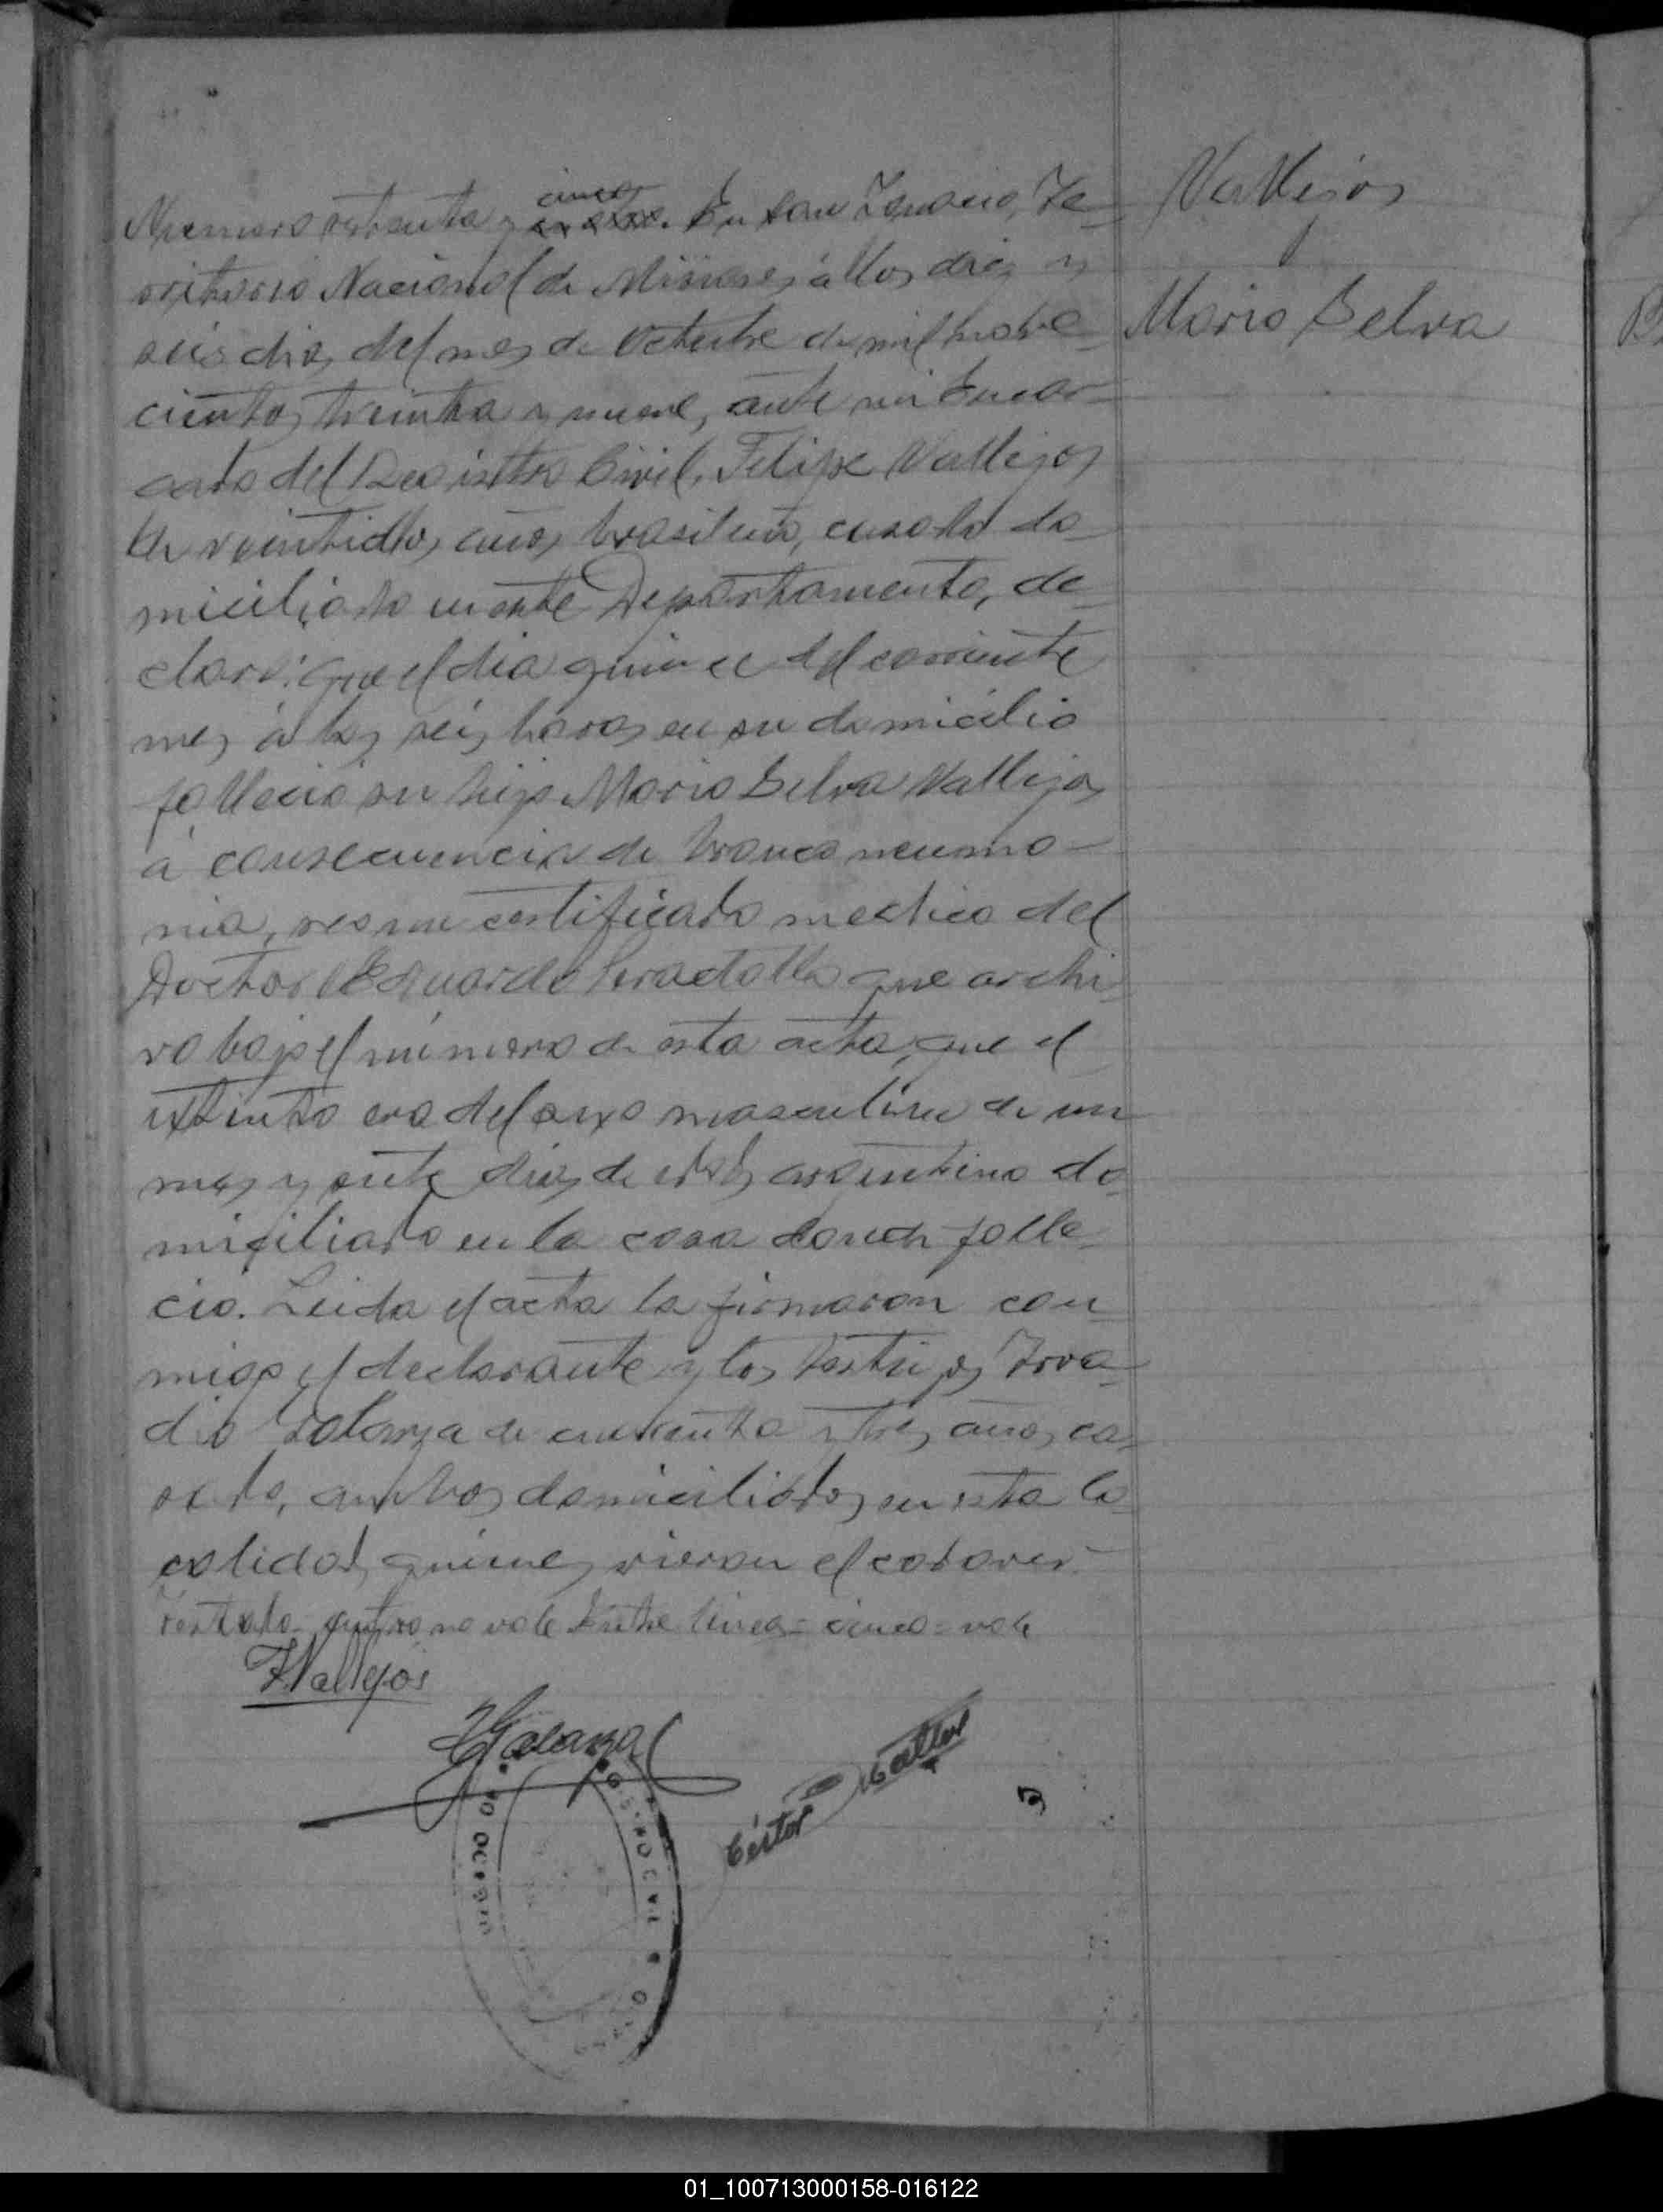 Numero setenta y cinco cuatro. En San Ignacio, Te-
rritorio Nacional de Misiones, á los diez y
seis dias del mes de Octubre de mil nove-
cientos treinta y nueve, ante mi Encar-
gado del Registro Civil, Felipe Vallejos
de veintidos años, brasilero, casado do-
miciliado en este Departamento, de-
claró: Que el dia quince del corriente
mes á las seis horas en su domicilio
fallecio su hijo Mario Selva Vallejos
á consecuencia de bronco neumo-
nia, segun certificado medico del
Doctor Eduardo que archi-
vo bajo el número de esta acta, que el
extinto era del sexo masculino de un
mes y siete dias de edad, argentino do-
miciliado en la casa donde falle-
cio. Leida el acta la firmaron con-
migo el declarante y los testigos
Galarza de cuarenta y tres años, ca-
sado, ambos domiciliados en esta lo-
calidad, quienes vieron el cadaver.
Testado cuatro no vale Entre lineas = cinco = vale
Vallejos
Mario Selva
F Vallejos
Galarza
01_100713000158-016122